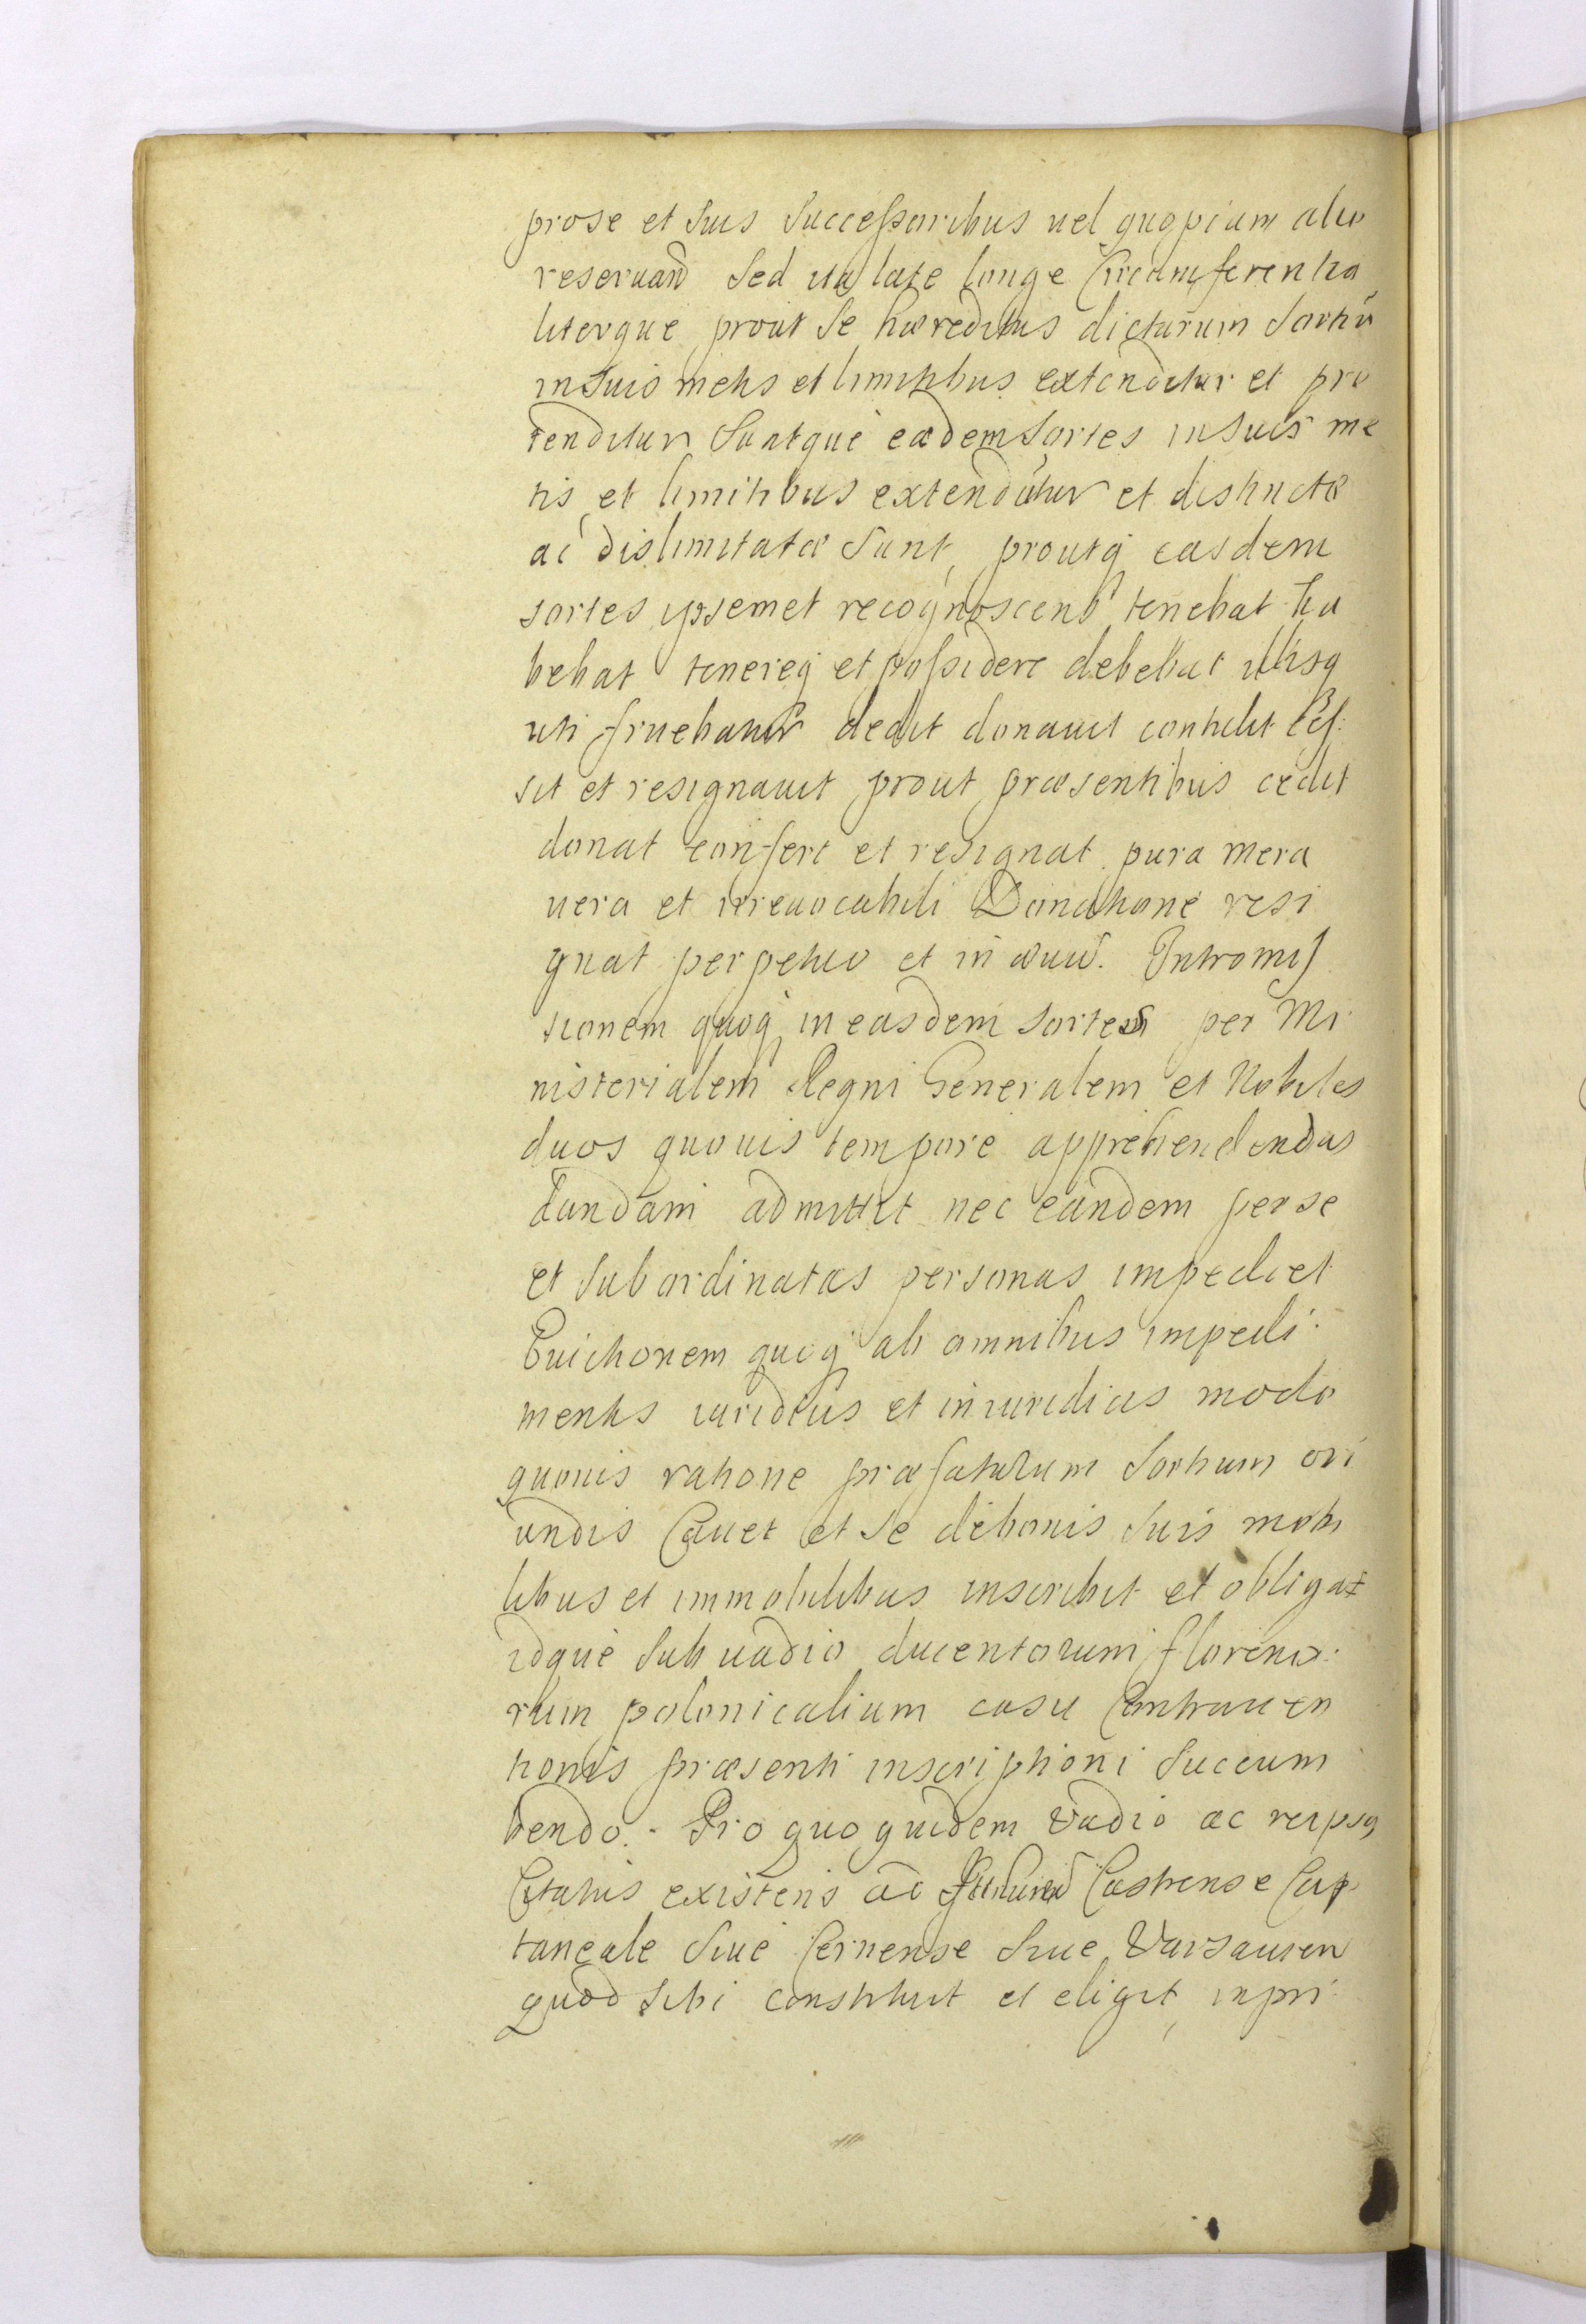 prose et suis successoribus uel quopiam alio
reseruand sed ita late longe Circumferentia
literque prout se haereditas dictarum sortiũ
in suis metis et limitibus extenditur et pro
tenditur suntque eaedem sortes in suis me
tis et limitibus extenduntur et distinctae
ac dislimitatae sunt, proutq easdem
sortes ipsemet recognoscens tenebat ha
bebat tenereq et possidere debebat illisq
uti fruebatur dedit donauit contulit ces:
sit et resignauit prout praesentibus cedit
donat confert et resignat pura mera
uera et irreuocabili Donatione resi
gnat perpetuo et in aeuũ. Intromis
sionem quoq in easdem sortes per Mi
nisterialem Regni Generalem et Nobiles
duos quouis tempore apprehendendas
dandam admittit nec eandem per se
et subordinatas personas impediet
Euictionem quoq ab omnibus impedi:
mentis iuridicis et iniuridicis modo
quouis ratione praefatarum sortium ori
undis Cauet et se de bonis suis mobi
libus et immobilibus inscribit et obligat
idque sub uadio ducentorum floreno:
rum polonicalium casu Contrauen
tionis praesenti inscriptioni succum
bendo. Pro quo quidem Vadio ac reipsa
Citatus existens ad Castrense Cap
taneale siue Cernense siue Varsauien
quod sibi constituit et eligit, inpri: